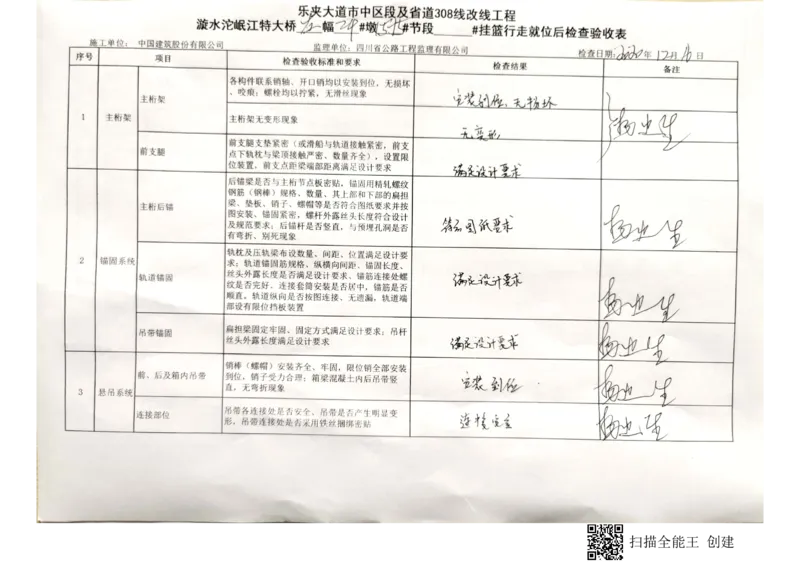 乐夹大道市中区段及省道308线改线工程
漩水沱岷江特大桥 左 幅 #墩 #节段 #挂篮行走就位后检查验收表
施工单位： 中国建筑股份有限公司 监理单位：四川省公路工程监理有限公司 检查日期：2020年 12月 日
序号 项目 检查验收标准和要求 检查结果 备注
1 主桁架
主桁架
各构件联系销轴、开口销均以安装到位，无损坏
、咬痕；螺栓均以拧紧，无滑丝现象
安装到位、无损坏
主桁架无变形现象
无变形
前支腿
前支腿支垫紧密（或滑船与轨道接触紧密，前支
点下轨枕与梁顶接触严密、数量齐全），设置限
位装置，前支点距梁端部距离满足设计要求
满足设计要求
2 锚固系统
主桁后锚
后锚梁是否与主桁节点板密贴，锚固用精轧螺纹
钢筋（钢棒）规格、数量、其上部和下部的扁担
梁、垫板、销子、螺帽等是否符合图纸要求并按
图安装、锚固紧密，螺杆外露丝头长度符合设计
及规范要求；后锚杆是否竖直，与预埋孔洞是否
有弯折、别死现象
符合图纸要求
轨道锚固
轨枕及压轨梁布设数量、间距、位置满足设计要
求；轨道锚固筋规格、纵横向间距、锚固长度、
丝头外露长度是否满足设计要求、锚筋连接处螺
纹是否完好、连接套筒安装是否居中，锚筋是否
顺直，轨道纵向是否按图连接、无遗漏，轨道端
部设有限位挡板装置
满足设计要求
吊带锚固
扁担梁固定牢固、固定方式满足设计要求；吊杆
丝头外露长度满足设计要求
满足设计要求
3 悬吊系统
前、后及箱内吊带
销棒（螺帽）安装齐全、牢固，限位销全部安装
到位，销子受力合理；箱梁混凝土内后吊带竖
直，无弯折现象
安装到位
连接部位
吊带各连接处是否安全、吊带是否产生明显变
形，吊带连接处是否采用铁丝捆绑密贴
连接安全
扫描全能王 创建